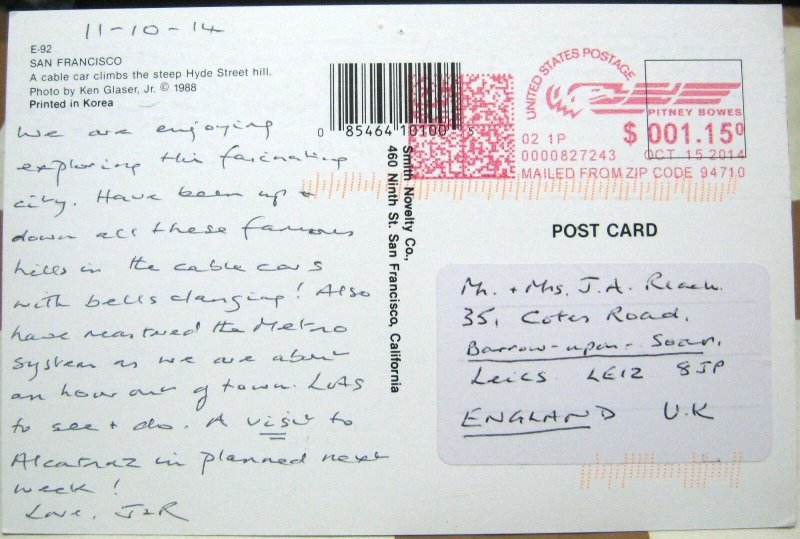 11-10-14
E-92
SAN FRANCISCO
A cable car climbs the steep Hyde Street hill.
Photo by Ken Glaser, Jr. © 1988
Printed in Korea
We are enjoying
exploring this fascinating
city. Have been up +
down all these famous
hills in the cable cars
with bells clanging! Also
have mastered the Metro
system as we are about
an hour out of town. Lots
to see + do. A visit to
Alcatraz is planned next
week!
Love, J&R
0 85464 10100 3
Smith Novelty Co.,
460 Ninth St. San Francisco, California
UNITED STATES POSTAGE
PITNEY BOWES
02 1P
$ 001.15⁰
0000827243
OCT 15 2014
MAILED FROM ZIP CODE 94710
POST CARD
Mr. + Mrs. J.A.
35, Cotes Road,
Barrow-upon-Soar,
Leics LE12 8JP
ENGLAND U.K